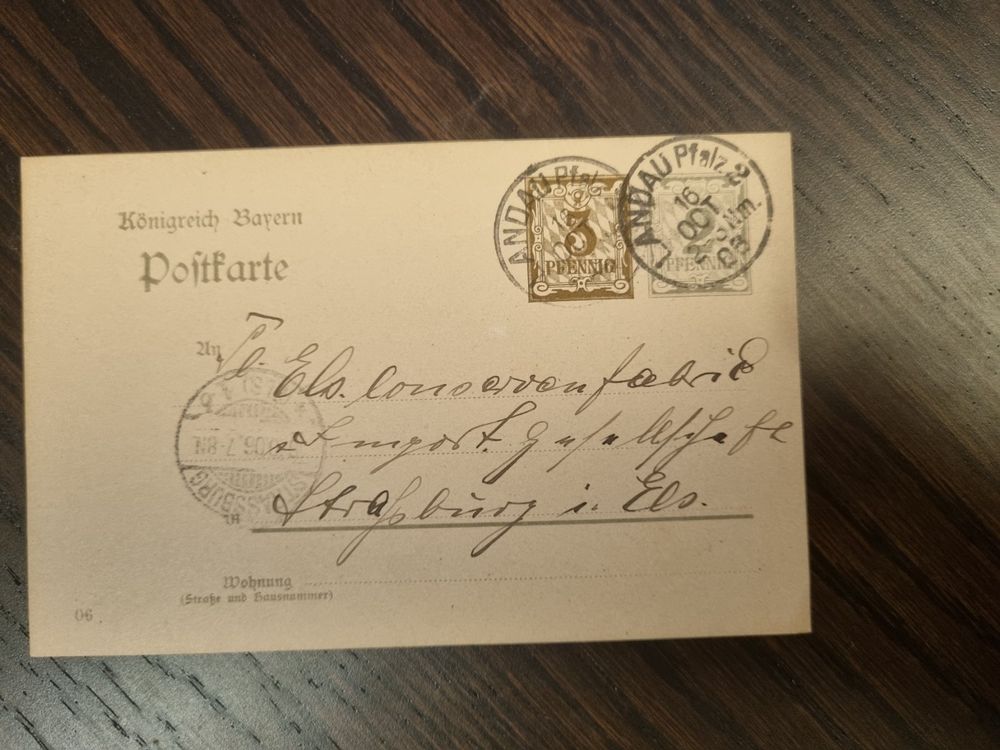 Königreich Bayern
Postkarte
LANDAU Pfalz 2
16
OCT
06
3
PFENNIG
2
PFENNIG
An
Els. Conservenfabrik
& Import Gesellschaft
STRASSBURG
06.7-8N
in Straßburg i. Els.
Wohnung
(Straße und Hausnummer)
06